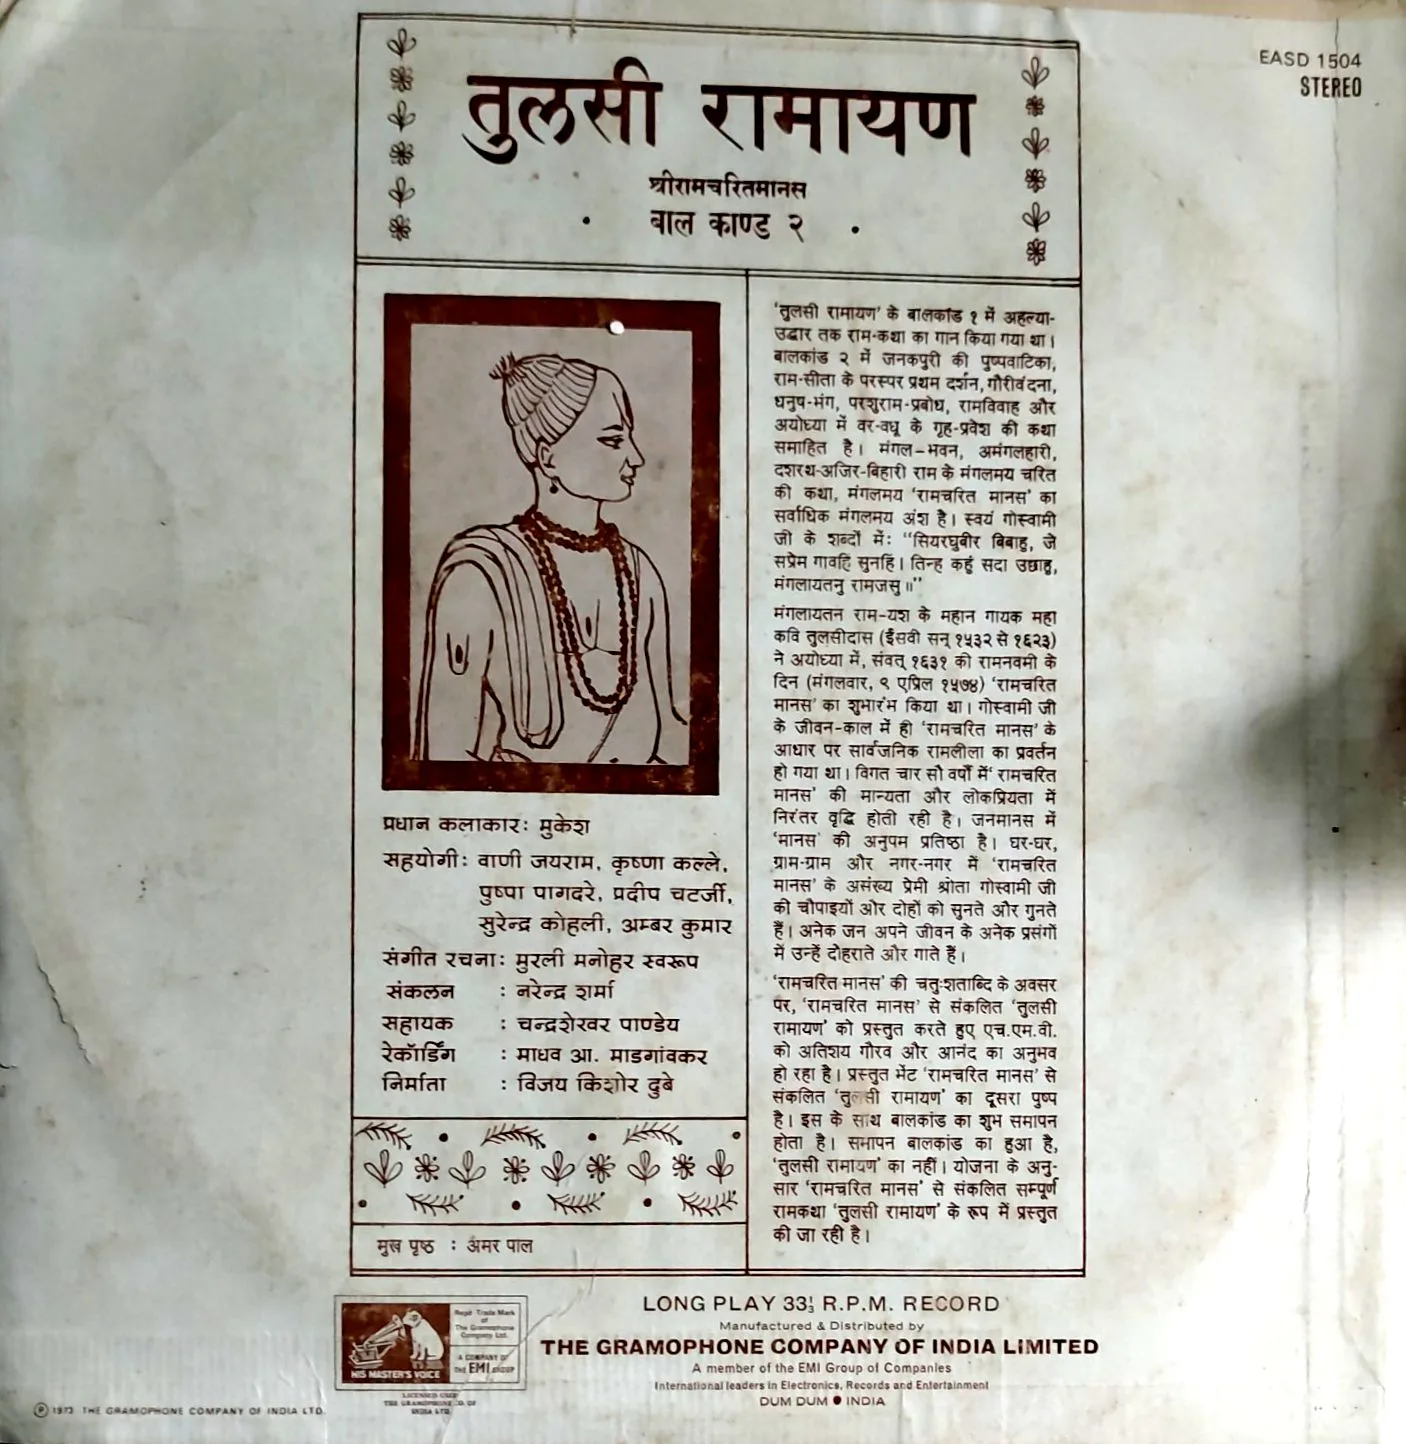 EASD 1504
STEREO
तुलसी रामायण
श्रीरामचरितमानस
बाल काण्ड २
प्रधान कलाकार: मुकेश
सहयोगी: वाणी जयराम, कृष्णा कल्ले,
पुष्पा पागदरे, प्रदीप चटर्जी,
सुरेन्द्र कोहली, अम्बर कुमार
संगीत रचना: मुरली मनोहर स्वरूप
संकलन : नरेन्द्र शर्मा
सहायक : चन्द्रशेखर पाण्डेय
रेकॉर्डिंग : माधव आ. माडगांवकर
निर्माता : विजय किशोर दुबे
मुख पृष्ठ : अमर पाल
'तुलसी रामायण' के बालकांड १ में अहल्या-
उद्धार तक राम-कथा का गान किया गया था।
बालकांड २ में जनकपुरी की पुष्पवाटिका,
राम-सीता के परस्पर प्रथम दर्शन, गौरीवंदना,
धनुष-भंग, परशुराम-प्रबोध, रामविवाह और
अयोध्या में वर-वधू के गृह-प्रवेश की कथा
समाहित है। मंगल-भवन, अमंगलहारी,
दशरथ-अजिर-बिहारी राम के मंगलमय चरित
की कथा, मंगलमय 'रामचरित मानस' का
सर्वाधिक मंगलमय अंश है। स्वयं गोस्वामी
जी के शब्दों में: "सियरघुबीर बिबाहु, जे
सप्रेम गावहि सुनहि। तिन्ह कहुं सदा उछाहु,
मंगलायतनु रामजसु॥"
मंगलायतन राम-यश के महान गायक महा
कवि तुलसीदास (ईसवी सन् १५३२ से १६२३)
ने अयोध्या में, संवत् १६३१ की रामनवमी के
दिन (मंगलवार, ९ एप्रिल १५७४) 'रामचरित
मानस' का शुभारंभ किया था। गोस्वामी जी
के जीवन-काल में ही 'रामचरित मानस' के
आधार पर सार्वजनिक रामलीला का प्रवर्तन
हो गया था। विगत चार सौ वर्षों में' रामचरित
मानस' की मान्यता और लोकप्रियता में
निरंतर वृद्धि होती रही है। जनमानस में
'मानस' की अनुपम प्रतिष्ठा है। घर-घर,
ग्राम-ग्राम और नगर-नगर में 'रामचरित
मानस' के असंख्य प्रेमी श्रोता गोस्वामी जी
की चौपाइयों और दोहों को सुनते और गुनते
हैं। अनेक जन अपने जीवन के अनेक प्रसंगों
में उन्हें दोहराते और गाते हैं।
'रामचरित मानस' की चतु:शताब्दि के अवसर
पर, 'रामचरित मानस' से संकलित 'तुलसी
रामायण' को प्रस्तुत करते हुए एच.एम.वी.
को अतिशय गौरव और आनंद का अनुभव
हो रहा है। प्रस्तुत भेंट 'रामचरित मानस' से
संकलित 'तुलसी रामायण' का दूसरा पुष्प
है। इस के साथ बालकांड का शुभ समापन
होता है। समापन बालकांड का हुआ है,
'तुलसी रामायण' का नहीं। योजना के अनु-
सार 'रामचरित मानस' से संकलित सम्पूर्ण
रामकथा 'तुलसी रामायण' के रूप में प्रस्तुत
की जा रही है।
HIS MASTER'S VOICE
Regd. Trade Mark
of
The Gramophone
Company Ltd.
A COMPANY OF
THE EMI GROUP
LICENSED USER
THE GRAMOPHONE CO. OF
INDIA LTD.
LONG PLAY 33⅓ R.P.M. RECORD
Manufactured & Distributed by
THE GRAMOPHONE COMPANY OF INDIA LIMITED
A member of the EMI Group of Companies
International leaders in Electronics, Records and Entertainment
DUM DUM ● INDIA
Ⓟ 1973 THE GRAMOPHONE COMPANY OF INDIA LTD.